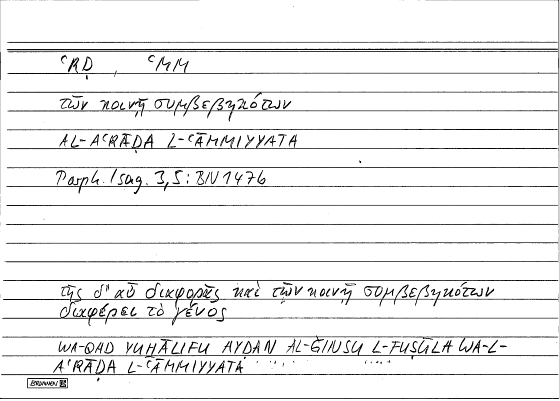 ʿRḌ , ʿMM
τῶν κοινῇ συμβεβηκότων
AL-AʿRĀḌA L-ʿĀMMIYYATA
Porph. Isag. 3,5: BN 1476
τῆς δ' αὖ διαφορᾶς καὶ τῶν κοινῇ συμβεβηκότων
διαφέρει τὸ γένος
WA-QAD YUḪĀLIFU AYḌAN AL-ǦINSU L-FUṢŪLA WA-L-
AʿRĀḌA L-ʿĀMMIYYATA
BRUNNEN